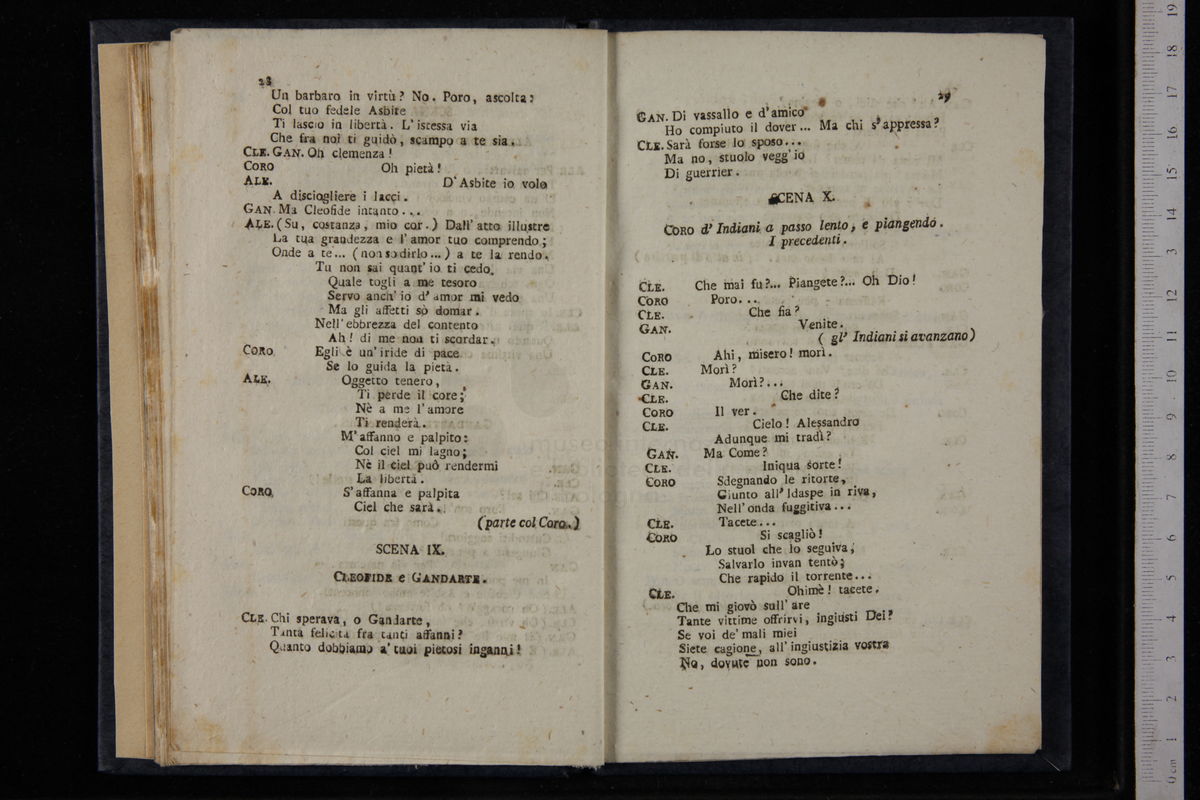 28
Un barbaro in virtù? No. Poro, ascolta:
Col tuo fedele Asbite
Ti lascio in libertà. L'istessa via
Che fra noi ti guidò, scampo a te sia.
CLE. GAN. Oh clemenza!
CORO Oh pietà!
ALE. D'Asbite io volo
A disciogliere i lacci.
GAN. Ma Cleofide intanto...
ALE. (Su, costanza, mio cor.) Dall'atto illustre
La tua grandezza e l'amor tuo comprendo;
Onde a te... (non so dirlo...) a te la rendo.
Tu non sai quant'io ti cedo,
Quale togli a me tesoro
Servo anch'io d'amor mi vedo
Ma gli affetti sò domar.
Nell'ebbrezza del contento
Ah! di me non ti scordar.
CORO Egli è un'iride di pace
Se lo guida la pietà.
ALE. Oggetto tenero,
Ti perde il core;
Nè a me l'amore
Ti renderà.
M'affanno e palpito:
Col ciel mi lagno;
Nè il ciel può rendermi
La libertà.
CORO. S'affanna e palpita
Ciel che sarà.
(parte col Coro.)
SCENA IX.
CLEOFIDE e GANDARTE.
CLE. Chi sperava, o Gandarte,
Tanta felicità fra tanti affanni?
Quanto dobbiamo a'tuoi pietosi inganni!
29
GAN. Di vassallo e d'amico
Ho compiuto il dover... Ma chi s'appressa?
CLE. Sarà forse lo sposo...
Ma no, stuolo vegg'io
Di guerrier.
SCENA X.
CORO d'Indiani a passo lento, e piangendo.
I precedenti.
CLE. Che mai fu?... Piangete?... Oh Dio!
CORO Poro...
CLE. Che fia?
GAN. Venite.
( gl'Indiani si avanzano)
CORO Ahi, misero! morì.
CLE. Morì?
GAN. Morì?...
CLE. Che dite?
CORO Il ver.
CLE. Cielo! Alessandro
Adunque mi tradì?
GAN. Ma Come?
CLE. Iniqua sorte!
CORO Sdegnando le ritorte,
Giunto all'Idaspe in riva,
Nell'onda fuggitiva...
CLE. Tacete...
CORO Si scagliò!
Lo stuol che lo seguiva,
Salvarlo invan tentò;
Che rapido il torrente...
CLE. Ohimè! tacete.
Che mi giovò sull'are
Tante vittime offrirvi, ingiusti Dei?
Se voi de'mali miei
Siete cagione, all'ingiustizia vostra
No, dovute non sono.
0 cm 1 2 3 4 5 6 7 8 9 10 11 12 13 14 15 16 17 18 19